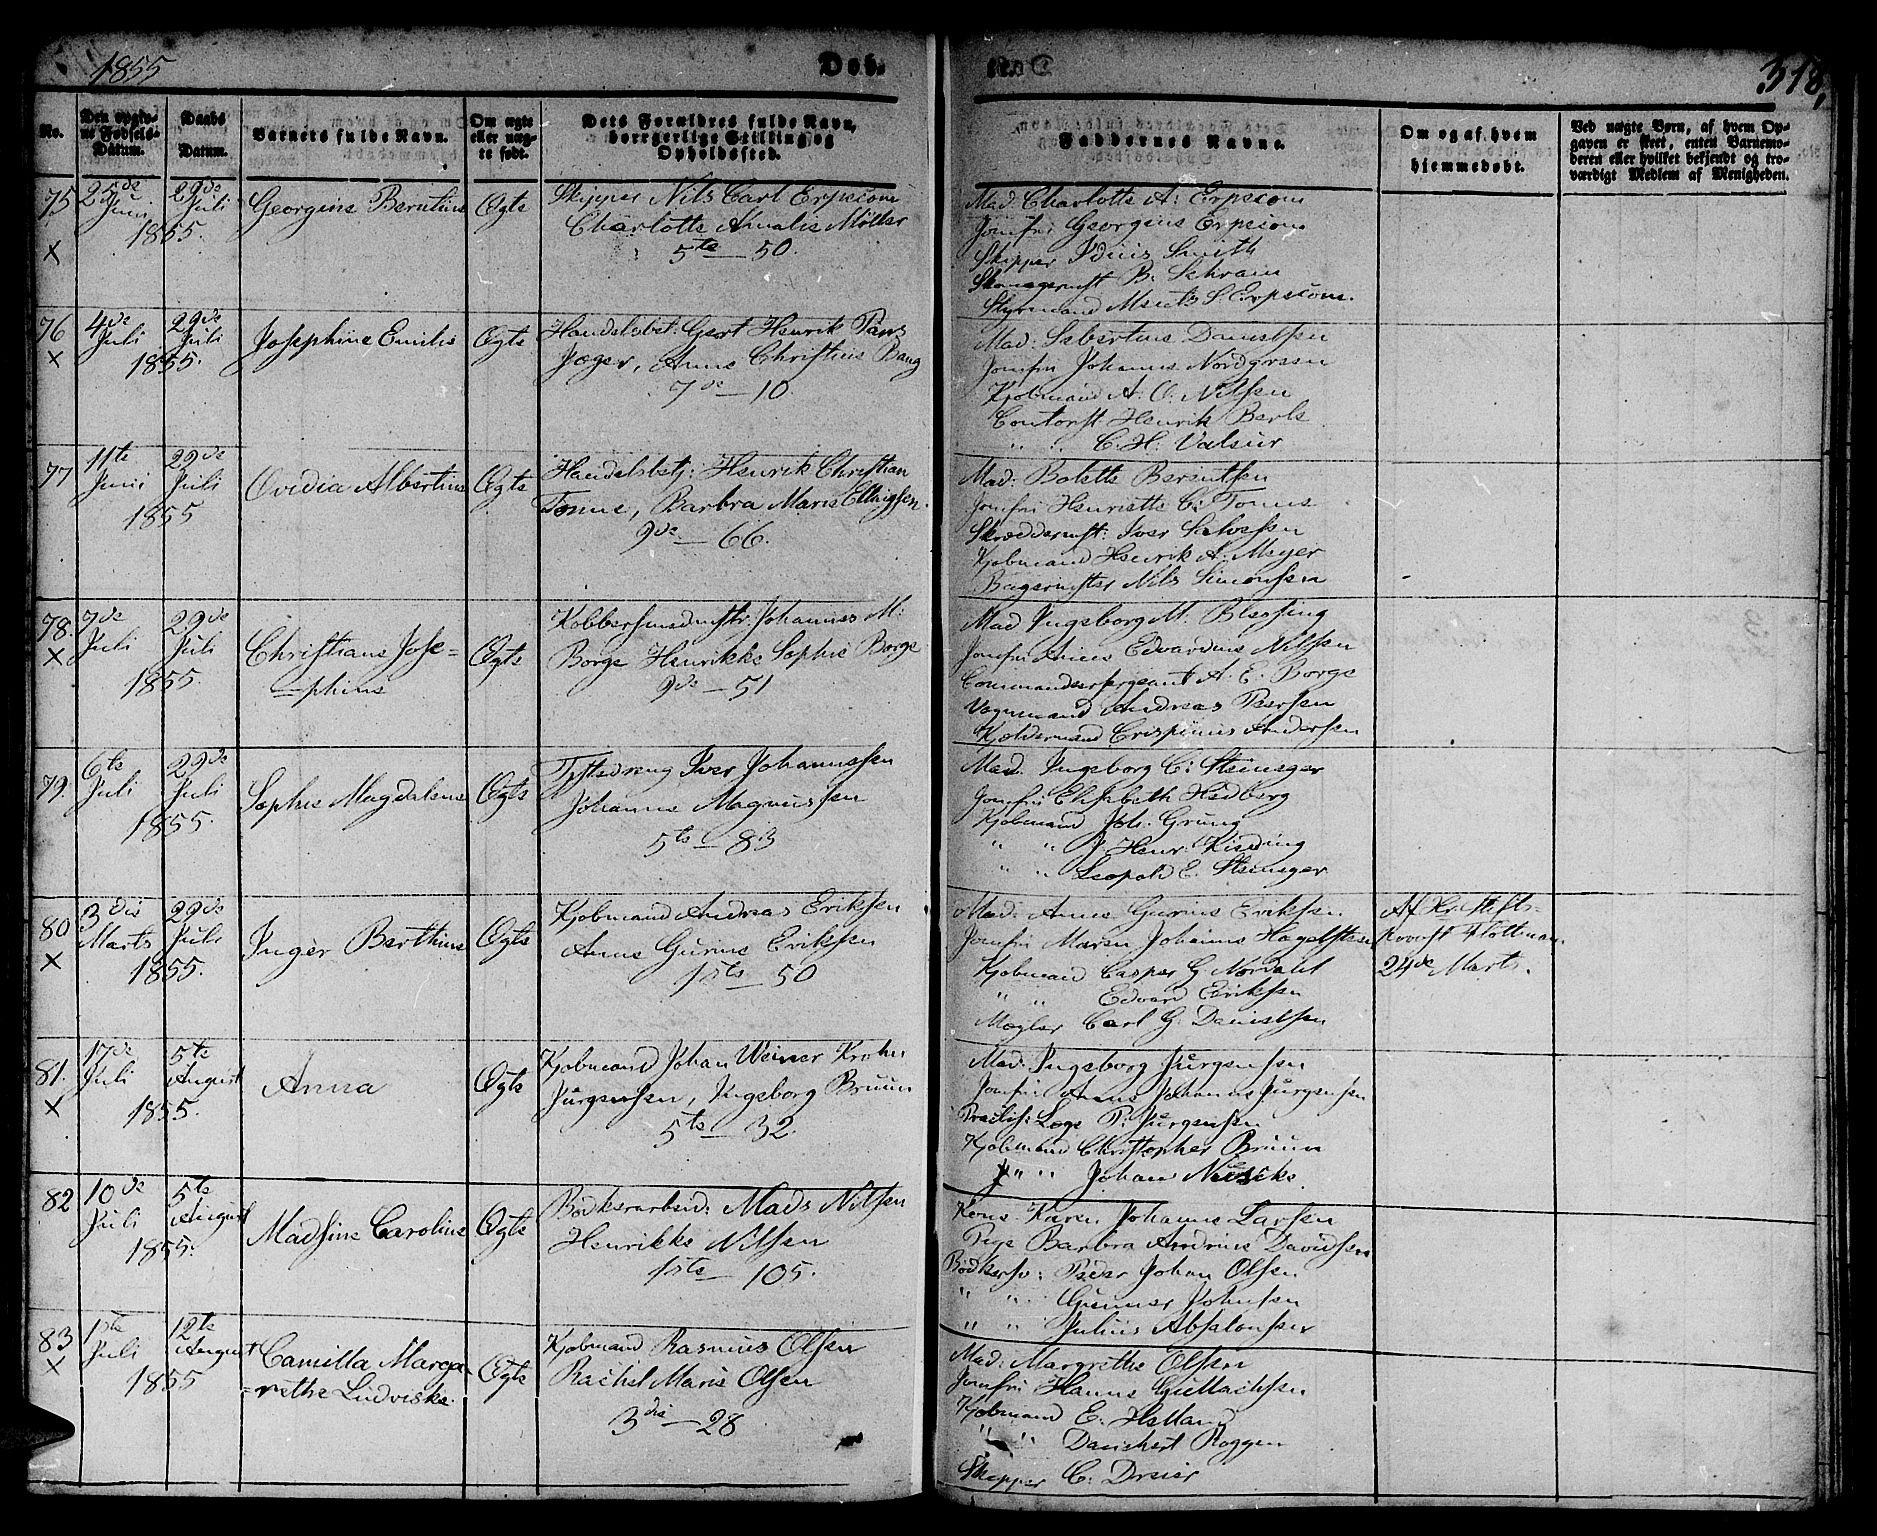 1855
Døb.
318,
No.
Den opgivne Fødsels-Datum.
Daabs Datum.
Barnets fulde Navn.
Om ægte eller uægte født.
Dets Forældres fulde Navn, borgerlige Stilling og Opholdssted.
Faddernes Navne.
Om og af hvem hjemmedøbt.
Ved uægte Børn, af hvem Opgaven er skeet, enten Barnemoderen eller hvilket bekjendt og troværdigt Medlem af Menigheden.
75
X
25de Juni
29de Juli
1855.
Georgine Berntine
Ægte
Skipper Nils Carl Erpecom
Charlotte Amalie Möller
5te — 50.
Mad. Charlotte A. Erpecom
Jomfru Georgine Erpecom
Skipper Smith
B. Schram
Styrmand S. Erpecom.
76
X
4de Juli
29de Juli
1855.
Josephine Emilie
Ægte
Handelsbet: Gert Henrik Pans
Jæger, Anne Christine Bang
7de — 10.
Mad: Sebertine Danielsen
Jomfru Johanne Nordgreen
Kjøbmand A. O. Nilsen
Contorist Henrik Berle
" " C. H. Valeur
77
11te Juni
29de Juli
1855
Ovidia Albertine
Ægte
Handelsbetj: Henrik Christian
Tonne, Barbra Marie Ellingsen.
9de — 66.
Mad: Bolette Berentsen
Jomfru Henriette C. Tonne
Skræddermst: Iver
Kjøbmand Henrik A. Meyer
Bagermester Nils Simonsen
78.
X
7de Juli
29de Juli
1855.
Christiane Jose=
=phine
Ægte
Kobbersmedmstr: Johannes M:
Borge Henrikke Sophie Borge
9de — 51
Mad Ingeborg M. Blessing
Jomfru Edvardine Nilsen
Commandeersergeant A. E. Borge
Vognmand Andreas Peersen
Kjeldermand Crispinus Andersen
79.
6te Juli
29de Juli
1855.
Sophie Magdalene
Ægte
Iver Johannessen
Johanne Magnussen
5te — 83
Mad. Ingeborg C: Steineger
Jomfru Elisabeth Hedberg
Kjøbmand Joh. Grung
" " J. Henr. Kisding
" " Leopold E. Steineger
80
X
3die Marts
29de Juli
1855.
Inger Berthine
Ægte
Kjøbmand Andreas Eriksen
Anne Gurine Eriksen
1ste — 50
Mad. Anne Gurine Eriksen
Jomfru Maren Johanne Hagelsteen
Kjøbmand Casper G. Nordahl
" " Edvard Eriksen
Mægler Carl G. Danielsen
Af Hr. Stifts-
Provst Flottman
24de Marts.
81.
X
17de Juli
5te August
1855.
Anna
Ægte
Kjøbmand Johan Weiner Krohn
Jürgensen, Ingeborg Bruun
5te — 32
Mad. Ingeborg Jürgensen
Jomfru Anne Johanne Jürgensen
Læge P. Jürgensen
Kjøbmand Christopher Bruun
" " Johan
82
10de Juli
5te August
1855.
Madsine Caroline
Ægte
Bødkerarbeid: Mads Nilsen
Henrikke Nilsen
1ste — 105.
Kone Karen Johanne Larsen
Pige Barbra Andrine Davidsen
Bødkersv: Peder Johan Olsen
" " Gunner Johnsen
" " Julius Absalonsen
83
X
1ste Juli
12te August
1855
Camilla Marga=
=rethe Ludviske.
Ægte
Kjøbmand Rasmus Olsen
Rachel Marie Olsen
3die — 28
Mad: Margrethe Olsen
Jomfru Hanne Gullachsen
Kjøbmand E. Helland
" " Danckert Roggen
Skipper C. Dreier